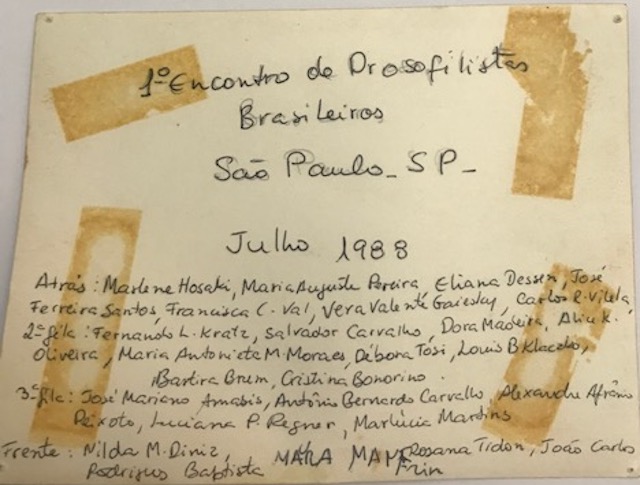 1º Encontro de Drosofilistas
Brasileiros
São Paulo - SP -
Julho 1988
Atrás: Marlene Hosaki, Maria Augusta Pereira, Eliana Dessen, José
Ferreira Santos, Francisca C. Val, Vera Valente Gaiesky, Carlos R. Vilela
2ª fila: Fernando L. Kratz, Salvador Carvalho, Dora Madeira, K.
Oliveira, Maria Antonieta M. Moraes, Débora Tosi, Louis B Klaczko,
Bartira Brum, Cristina Bonorino.
3ª fila: José Mariano Amabis, Antônio Bernardo Carvalho, Alexandre Afrânio
Peixoto, Luciana P. Regner, Marlúcia Martins
Frente: Nilda M. Diniz, MARA Rosana Tidon, João Carlos
Rodrigues Baptista